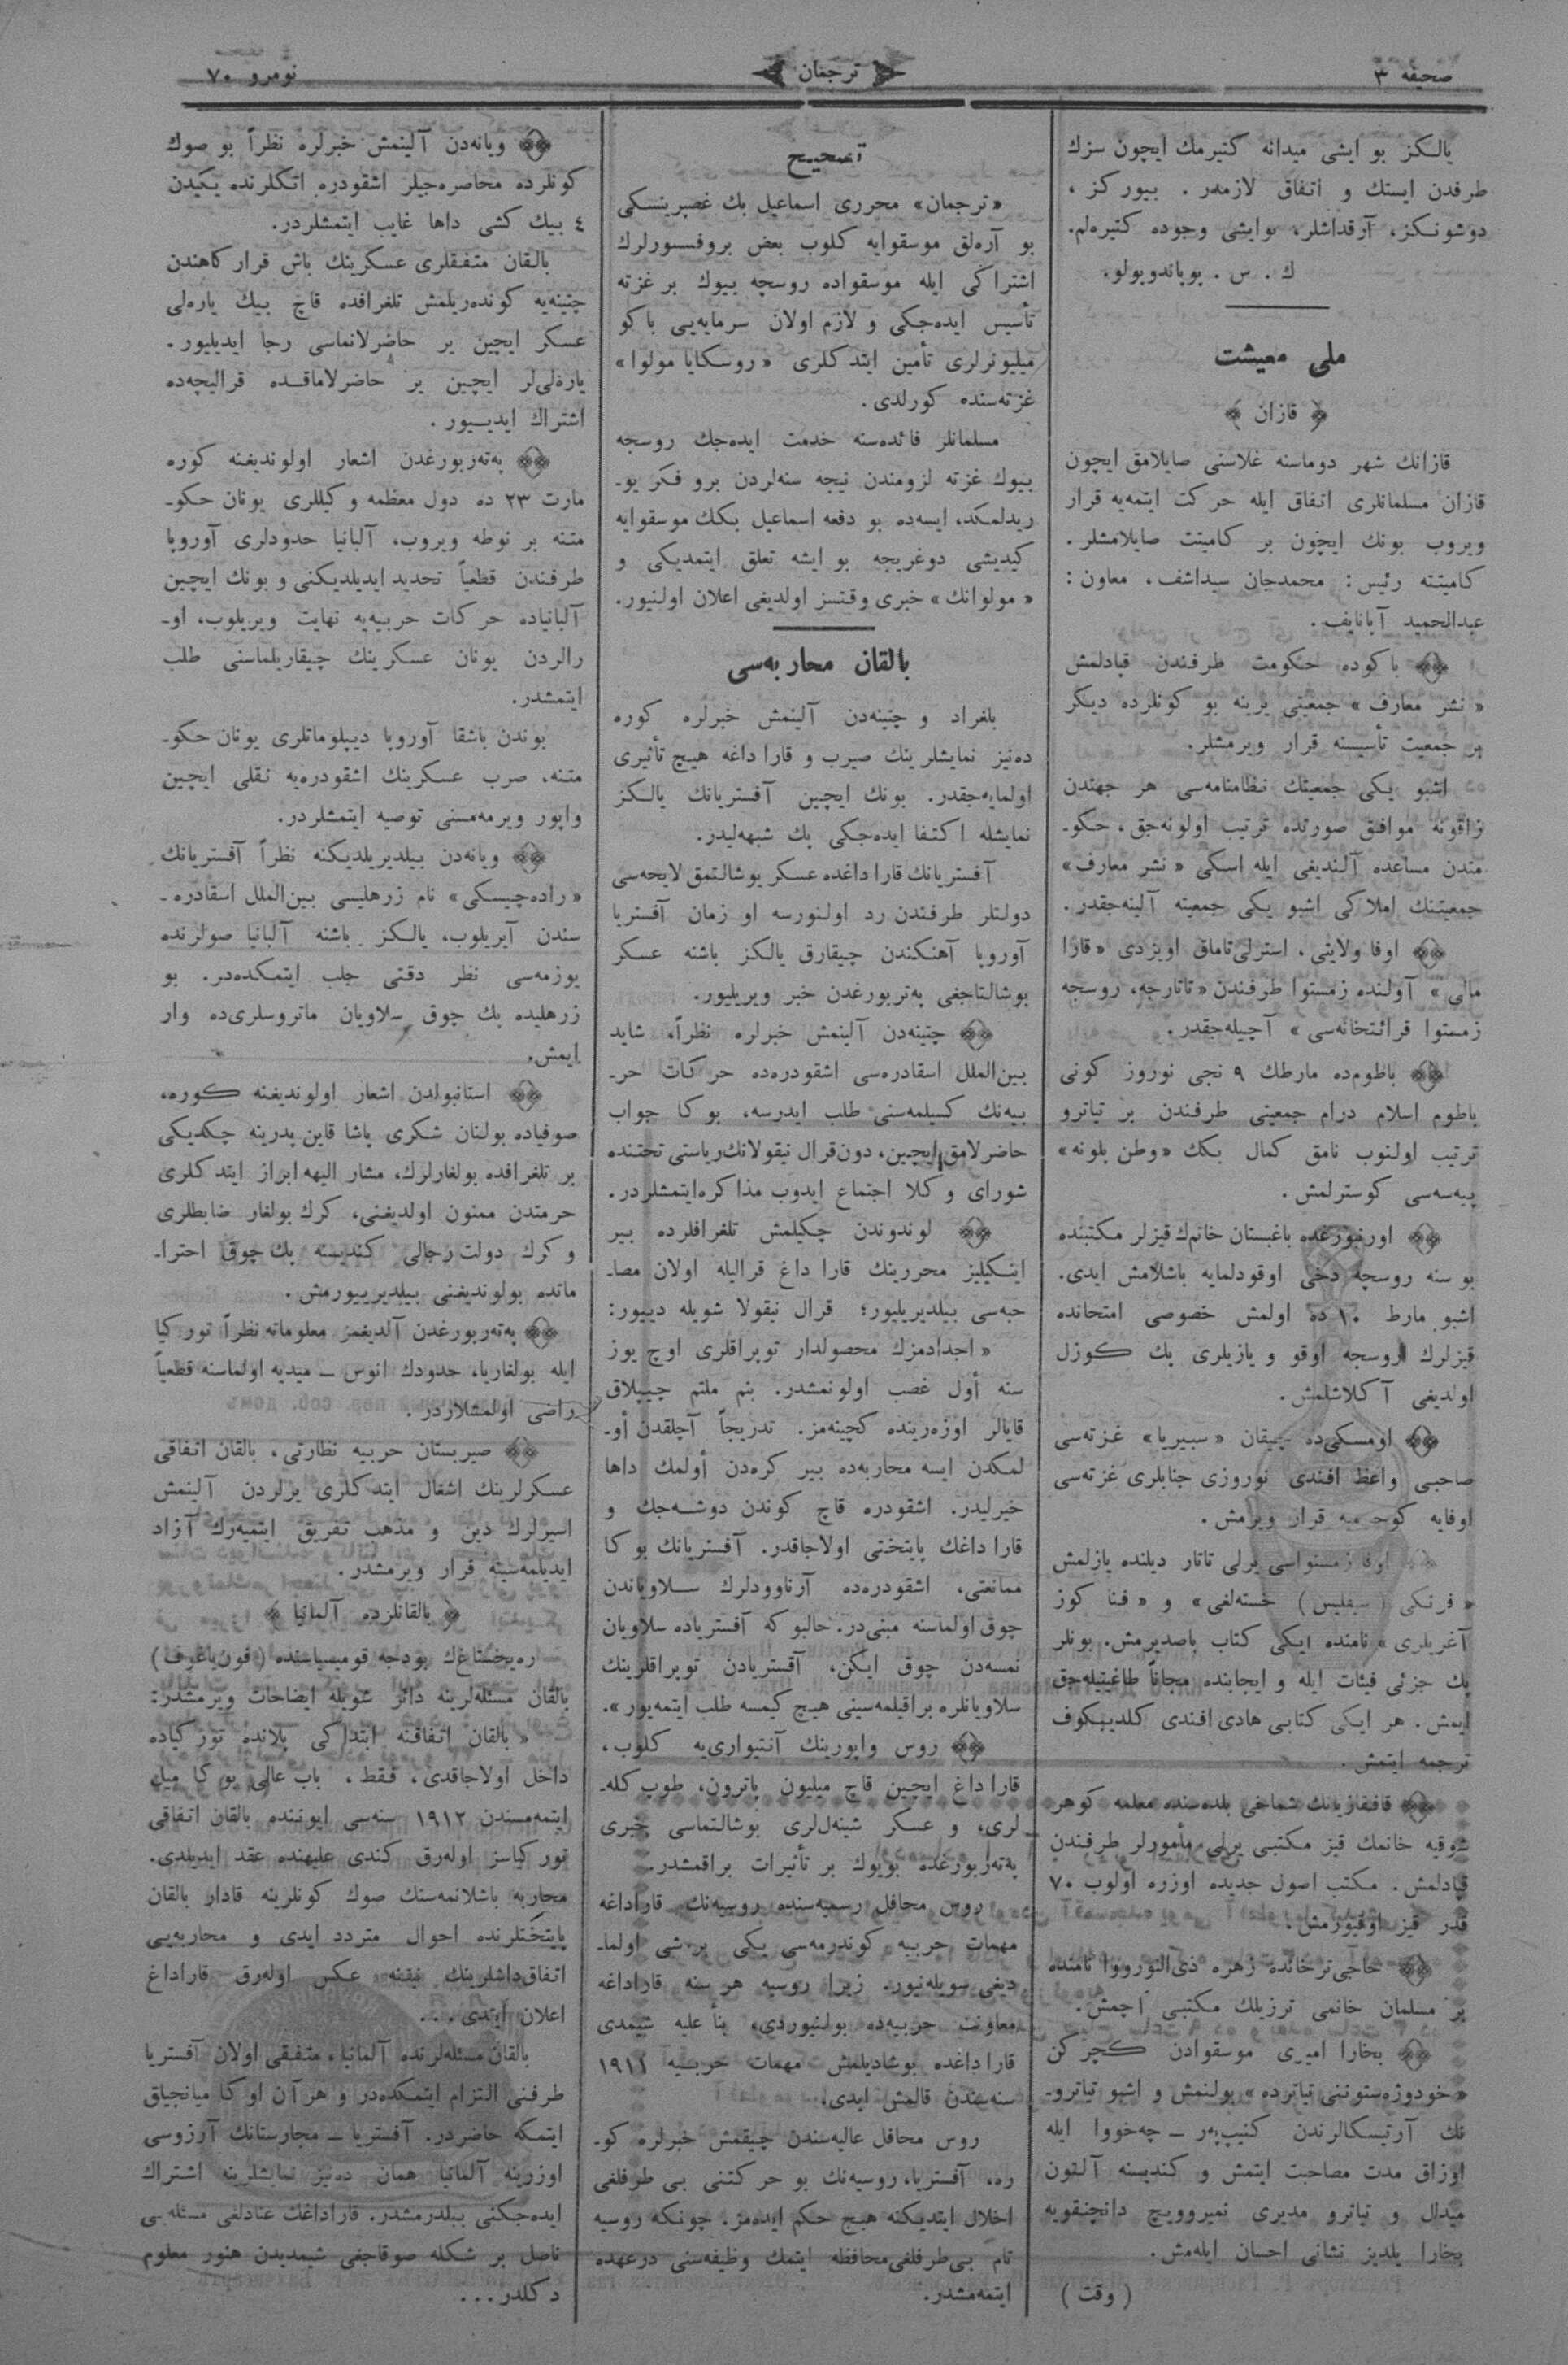 صحیفه ٣
ترجمان
نومرو ٧٠
یالکز بو ایشی میدانه کتیرمك ایچون سزك
طرفدن ایستك و اتفاق لازمدر. بیورکز،
دوشونکز، آرقداشلر، بوایشی وجوده کتیره‌لم.
ك. س. بوپاندوبولو.
ملی معیشت
﴿ قازان ﴾
قازانك شهر دوماسنه غلاسنی صایلامق ایچون
قازان مسلمانلری اتفاق ایله حرکت ایتمه‌یه قرار
ویروب بونك ایچون بر کامیتت صایلامشلر.
کامیتته رئیس: محمدجان سیداشف، معاون:
عبدالحمید آپانایف.
باکوده حکومت طرفندن قپادلمش
«نشر معارف» جمعیتی یرینه بو کونلرده دیکر
بر جمعیت تأسیسنه قرار ویرمشلر.
اشبو یکی جمعیتك نظامنامه‌سی هر جهتدن
زاقونه موافق صورتده ترتیب اولونه‌جق، حکو۔
متدن مساعده آلندیغی ایله اسکی «نشر معارف»
جمعیتنك املاکی اشبو یکی جمعیته آلینه‌جقدر.
اوفا ولایتی، استرلی‌تاماق اویزدی «قارا
مالی» آولنده زمستوا طرفندن «تاتارجه، روسجه
زمستوا قرائتخانه‌سی» آچیله‌جقدر.
باطوم‌ده مارطك ٩ نجی نوروز کونی
باطوم اسلام درام جمعیتی طرفندن بر تیاترو
ترتیب اولنوب نامق کمال بكك «وطن یلونه»
پیه‌سه‌سی کوسترلمش.
اورنبورغده باغبستان خانم‌ك قیزلر مکتبنده
بو سنه روسچه دخی اوقودلمایه باشلامش ایدی.
اشبو مارط ١٠ ده اولمش خصوصی امتحانده
قیزلرك روسجه اوقو و یازیلری پك کوزل
اولدیغی آکلاشلمش.
اومسکی‌ده چیقان «سیبریا» غزته‌سی
صاحبی واعظ افندی نوروزی جنابلری غزته‌سی
اوفایه کوچرمیه قرار ویرمش.
اوفا زمستواسی یرلی تاتار دیلنده یازلمش
«فرنکی (سیفلیس) خسته‌لغی» و «فنا کوز
آغریلری» نامنده ایکی کتاب باصدیرمش. بونلر
پك جزئی فیئات ایله و ایجابنده مجاناً طاغیتیله‌جق
ایمش. هر ایکی کتابی هادی افندی کلدیبکوف
ترجمه ایتمش.
قافقازیانك شماخی بلده‌سنده معلمه کوهر
شوقیه خانمك قیز مکتبی یرلی مأمورلر طرفندن
قپادلمش. مکتب اصول جدیده اوزره اولوب ٧٠
قدر قیز اوقیورمش.
حاجی‌ترخانده زهره ذی‌النورووا نامنده
بر مسلمان خانمی ترزیلك مکتبی آچمش.
بخارا امیری موسقوادن کچرکن
«خودوژه‌ستوننی تیاترده» بولنمش و اشبو تیاترو۔
نك آرتیسکالرندن کنیپپه‌ر ـ چه‌خووا ایله
اوزاق مدت مصاحبت ایتمش و کندیسنه آلتون
میدال و تیاترو مدیری نمیروویچ دانچنقویه
بخارا یلدیز نشانی احسان ایله‌مش.
(وقت)
تصحیح
«ترجمان» محرری اسماعیل بك غصپرینسکی
بو آره‌لق موسقوایه کلوب بعض پروفسورلرك
اشتراکی ایله موسقواده روسچه بیوك بر غزته
تأسیس ایده‌جکی و لازم اولان سرمایه‌یی باکو
میلیونرلری تأمین ایتدکلری «روسکایا مولوا»
غزته‌سنده کورلدی.
مسلمانلر فائده‌سنه خدمت ایده‌جك روسجه
بیوك غزته لزومندن نیجه سنه‌لردن برو فکر یو۔
ریدلمکده ایسه‌ده بو دفعه اسماعیل بكك موسقوایه
کیدیشی دوغریجه بو ایشه تعلق ایتمدیکی و
«مولوانك» خبری وقتسز اولدیغی اعلان اولنیور.
بالقان محاربه‌سی
بلغراد و چتینه‌دن آلینمش خبرلره کوره
ده‌نیز نمایشلرینك صیرب و قارا داغه هیچ تأثیری
اولمایه‌جقدر. بونك ایچین آفستریانك یالکز
نمایشله اکتفا ایده‌جکی پك شبهه‌لیدر.
آفستریانك قارا داغده عسکر بوشالتمق لایحه‌سی
دولتلر طرفندن رد اولنورسه او زمان آفستریا
آوروپا آهنکندن چیقارق یالکز باشنه عسکر
بوشالتاجغی په‌تربورغدن خبر ویریلیور.
چتینه‌دن آلینمش خبرلره نظراً، شاید
بین‌الملل اسقادره‌سی اشقودره‌ده حرکات حر۔
بیه‌نك کسیلمه‌سنی طلب ایدرسه، بوکا جواب
حاضرلامق ایچین، دون قرال نیقولانك ریاستی تختنده
شورای وکلا اجتماع ایدوب مذاکره ایتمشلردر.
لوندوندن چکیلمش تلغرافلرده بیر
اینکیلیز محررینك قارا داغ قرالیله اولان مصا۔
حبه‌سی بیلدیریلیور؛ قرال نیقولا شویله دییور:
«اجدادمزك محصولدار توپراقلری اوچ یوز
سنه أول غصب اولونمشدر. بنم ملتم چیپلاق
قایالر اوزه‌رینده کچینه‌مز. تدریجاً آچلقدن أو۔
لمکدن ایسه محاربه‌ده بیر کره‌دن أولمك داها
خیرلیدر. اشقودره قاچ کوندن دوشه‌جك و
قارا داغك پایتختی اولاجاقدر. آفستریانك بوکا
ممانعتی، اشقودره‌ده آرناوودلرك سلاویاندن
چوق اولماسنه مبنی‌در. حالبوکه آفستریاده سلاویان
نمسه‌دن چوق ایکن، آفستریادن توپراقلرینك
سلاویانلره براقیلمه‌سینی هیچ کیمسه طلب ایتمه‌یور».
روس واپورینك آنتیواری‌یه کلوب،
قارا داغ ایچین قاچ میلیون پاترون، طوپ کله۔
لری، و عسکر شینه‌ل‌لری بوشالتماسی خبری
په‌تربورغده بویوك بر تأثیرات براقمشدر.
روس محافل رسمیه‌سنده روسیه‌نك قاراداغه
مهمات حربیه کوندرمه‌سی یکی بر شی اولما۔
دیغی سویله‌نیور. زیرا روسیه هر سنه قاراداغه
معاونت حربیه‌ده بولنیوردی، بنأعلیه شیمدی
قارا داغده بوشادیلمش مهمات حربیه ١٩١٢
سنه‌سندن قالمش ایدی.
روس محافل عالیه‌سندن چیقمش خبرلره کو۔
ره، آفستریا، روسیه‌نك بو حرکتنی بی طرفلغی
اخلال ایتدیکنه هیچ حکم ایده‌مز. چونکه روسیه
تام بی‌طرفلغی محافظه ایتمك وظیفه‌سنی درعهده
ایتمه‌مشدر.
ویانه‌دن آلینمش خبرلره نظراً بو صوك
کونلرده محاصره‌جیلر اشقودره اتکلرنده یکیدن
٤ بیك کشی داها غایب ایتمشلردر.
بالقان متفقلری عسکرینك باش قرارکاهندن
چتینه‌یه کونده‌ریلمش تلغرافده قاچ بیك یاره‌لی
عسکر ایچین یر حاضرلانماسی رجا ایدیلیور.
یاره‌لی‌لر ایچین یر حاضرلاماقده قرالیچه‌ده
اشتراك ایدییور.
په‌ته‌ربورغدن اشعار اولوندیغنه کوره
مارت ٢٣ ده دول معظمه وکیللری یونان حکو۔
متنه بر نوطه ویروب، آلبانیا حدودلری آوروپا
طرفندن قطعیاً تحدید ایدیلدیکنی و بونك ایچین
آلبانیاده حرکات حربیه‌یه نهایت ویریلوب، او۔
رالردن یونان عسکرینك چیقاریلماسنی طلب
ایتمشدر.
بوندن باشقا آوروپا دیپلوماتلری یونان حکو۔
متنه، صرب عسکرینك اشقودره‌یه نقلی ایچین
واپور ویرمه‌مسنی توصیه ایتمشلردر.
ویانه‌دن بیلدیریلدیکنه نظراً آفستریانك
«راده‌چیسکی» نام زرهلیسی بین‌الملل اسقادره۔
سندن آیریلوب، یالکز باشنه آلبانیا صولرنده
یوزمه‌سی نظر دقتی جلب ایتمکده‌در. بو
زرهلیده پك چوق سلاویان ماتروسلری‌ده وار
ایمش.
استانبولدن اشعار اولوندیغنه کوره،
صوفیاده بولنان شکری پاشا قاین پدرینه چکدیکی
بر تلغرافده بولغارلرك، مشار الیهه ابراز ایتدکلری
حرمتدن ممنون اولدیغنی، کرك بولغار ضابطلری
و کرك دولت رجالی کندیسنه پك چوق احترا۔
ماتده بولوندیغنی بیلدیرییورمش.
په‌ته‌ربورغدن آلدیغمز معلوماته نظراً تورکیا
ایله بولغاریا، حدودك انوس ـ میدیه اولماسنه قطعیاً
راضی اولمشلاردر.
صیربستان حربیه نظارتی، بالقان اتفاقی
عسکرلرینك اشغال ایتدکلری یرلردن آلینمش
اسیرلرك دین و مذهب تفریق ایتمیه‌رك آزاد
ایدیلمه‌سینه قرار ویرمشدر.
﴿ بالقانلرده آلمانیا ﴾
ره‌یخستاغ‌ك بودجه قومیسیاسنده (فون‌یاغوف)
بالقان مسئله‌لرینه دائر شویله ایضاحات ویرمشدر:
«بالقان اتفاقنه ابتداکی پلانده تورکیاده
داخل اولاجاقدی، فقط، باب عالی بوکا میل
ایتمه‌مسندن ١٩١٢ سنه‌سی ایوننده بالقان اتفاقی
تورکیاسز اوله‌رق کندی علیهنده عقد ایدیلدی.
محاربه باشلانمه‌سنك صوك کونلرینه قادار بالقان
پایتختلرنده احوال متردد ایدی و محاربه‌یی
اتفاق‌داشلرینك نیتنه عکس اوله‌رق قاراداغ
اعلان ایتدی...
بالقان مسئله‌لرنده آلمانیا، متفقی اولان آفستریا
طرفنی التزام ایتمکده‌در و هر آن اوکا میانجیلق
ایتمکه حاضردر. آفستریا ـ مجارستانك آرزوسی
اوزرینه آلمانیا همان ده‌نیز نمایشلرینه اشتراك
ایده‌جکنی بیلدرمشدر. قاراداغك عنادلغی مسئله‌یی
ناصل بر شکله صوقاجغی شیمدیدن هنوز معلوم
دکلدر...